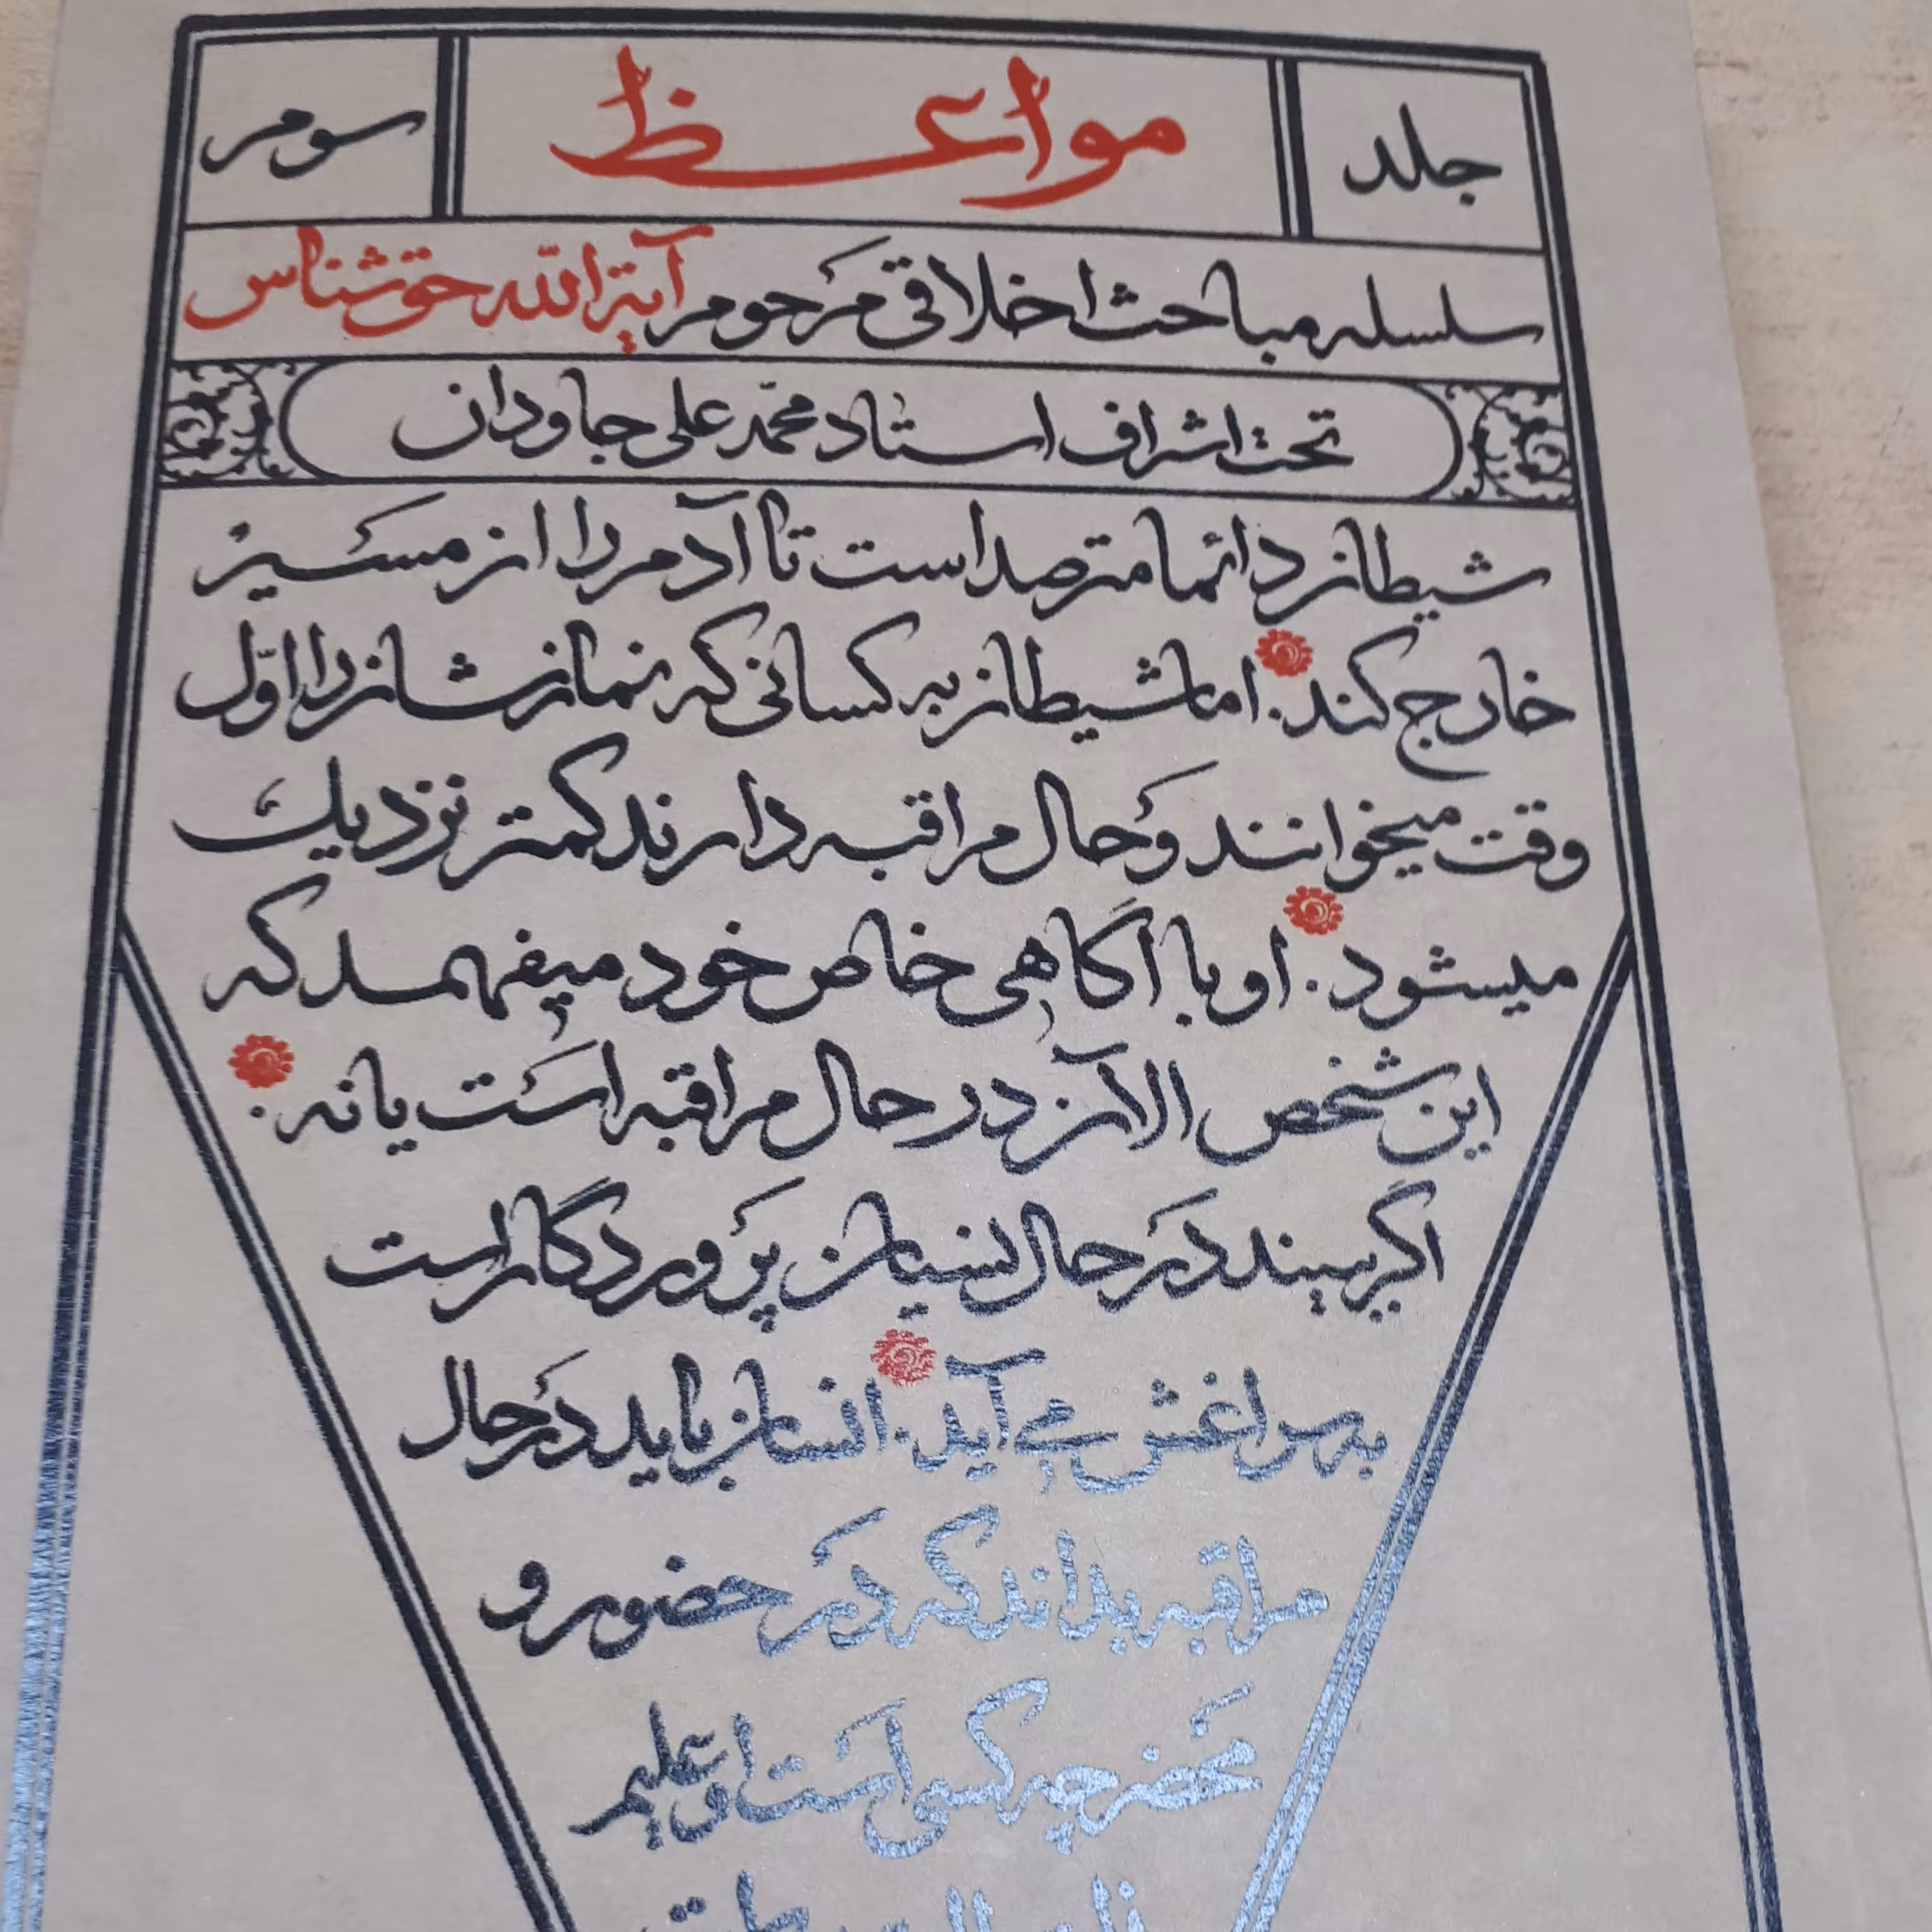 جلد مواعظ سوم
سلسله مباحث اخلاقی مرحوم آیة الله حق شناس
تحت اشراف استاد محمد علی جاودان
شیطان دائما مترصد است تا آدم را از مسیر
خارج کند. اما شیطان به کسانی که نمازشان را اوّل
وقت میخوانند و حال مراقبه دارند کمتر نزدیک
میشود. او با آگاهی خاص خود میفهمد که
این شخص الآن در حال مراقبه است یا نه.
اگر ببیند در حال نسیان پروردگار است
به سراغش می آید. انسان باید در حال
مراقبه بداند که در حضور و
محضر چه کسی است او علیم